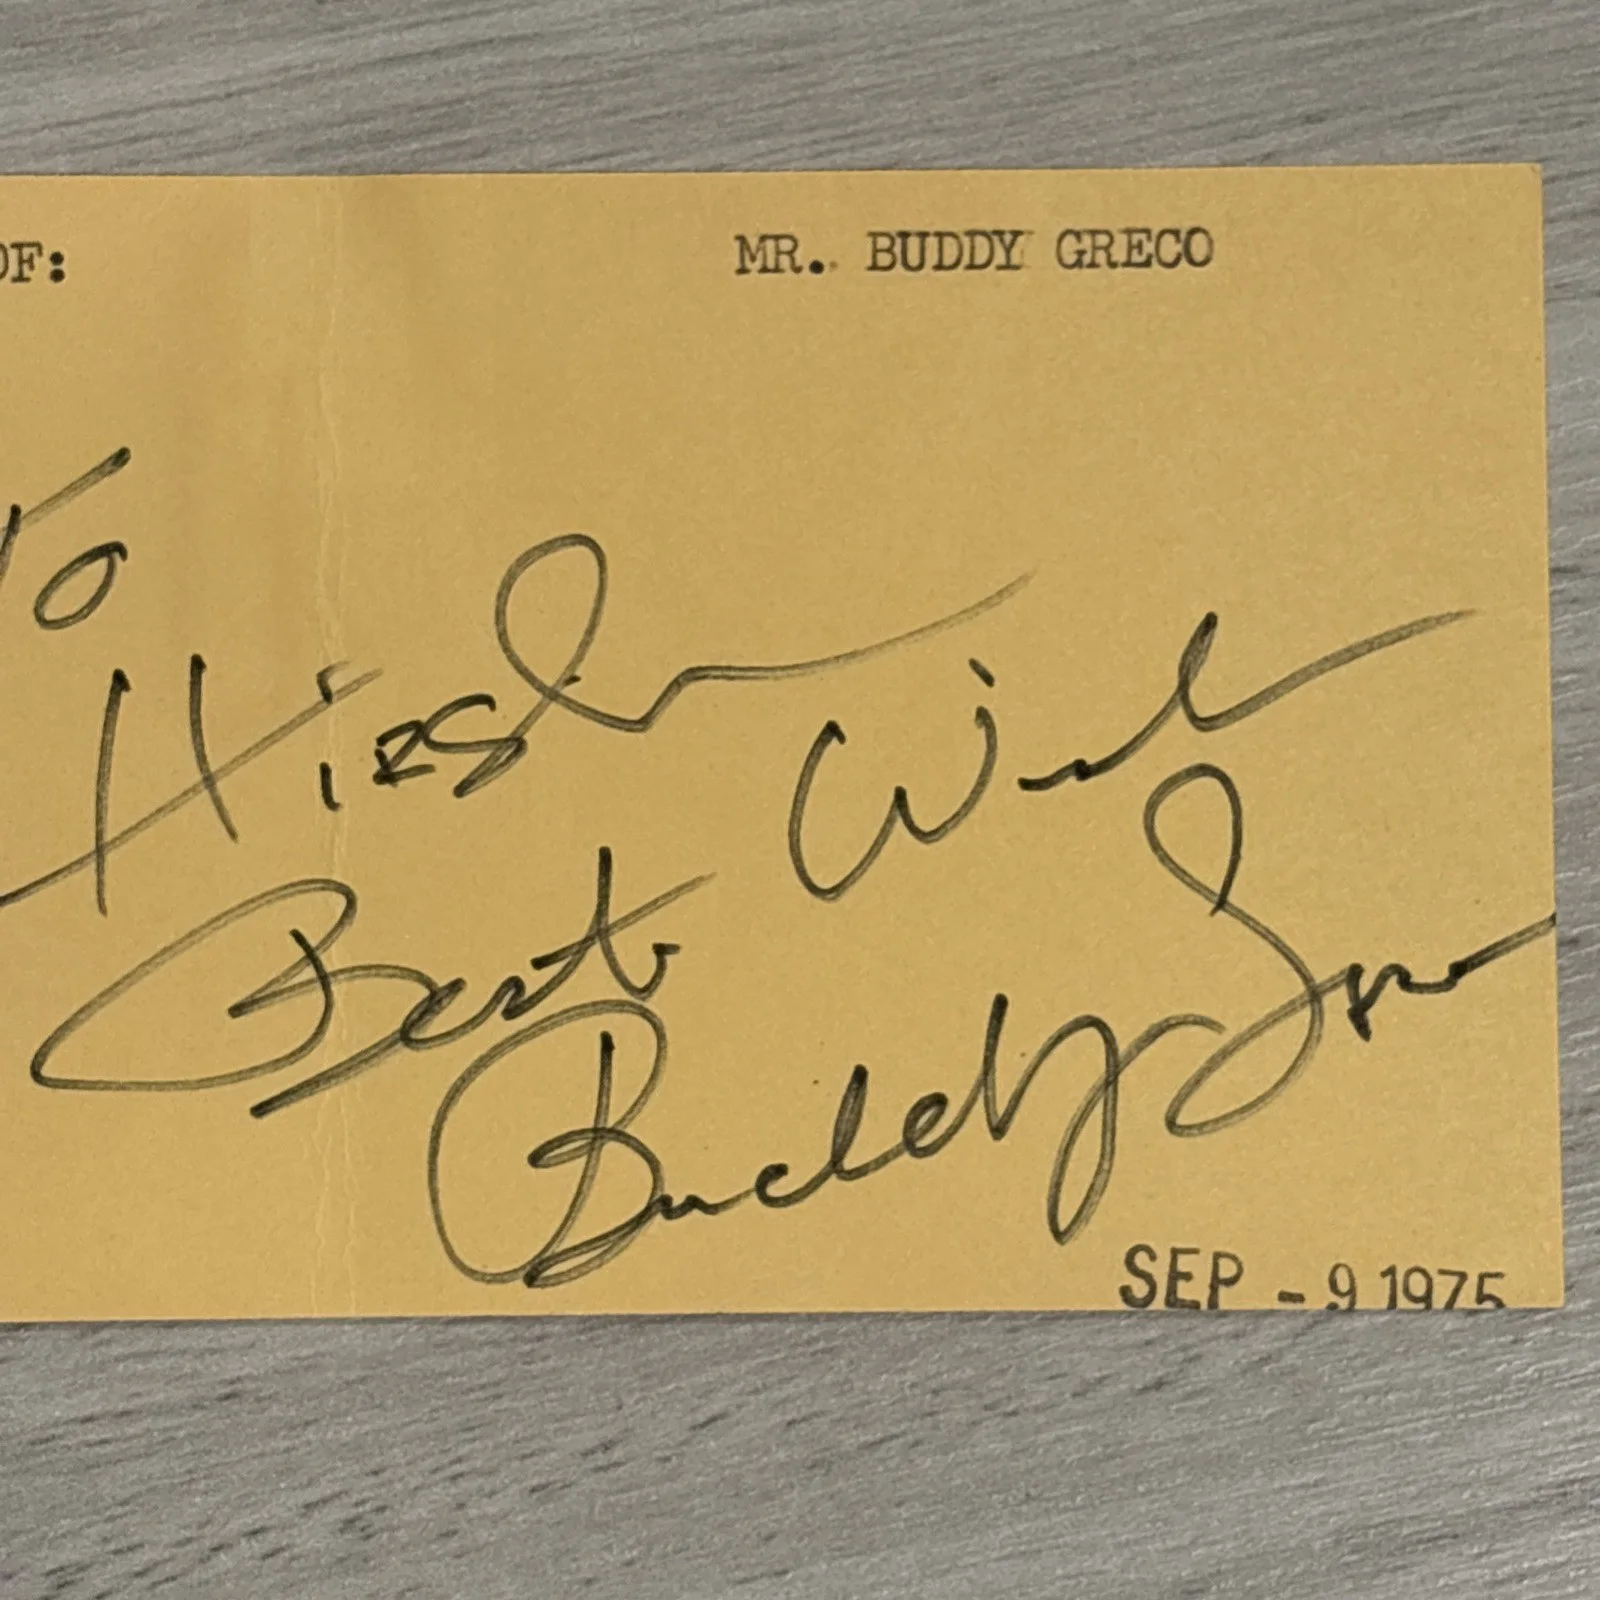 OF: MR. BUDDY GRECO
To
Hirsh
Best Wish
Buddy Greco
SEP - 9 1975